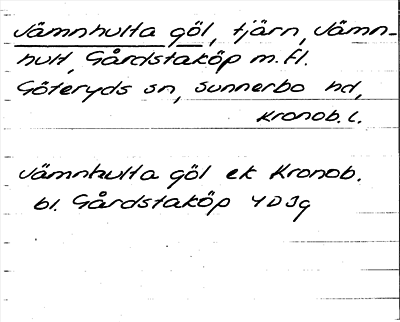 Jämnhulta göl, tjärn, Jämn-
hult, Gårdstaköp m.fl.
Göteryds sn, Sunnerbo hd,
Kronob. l.
Jämnhulta göl ek Kronob.
bl. Gårdstaköp 4D3g